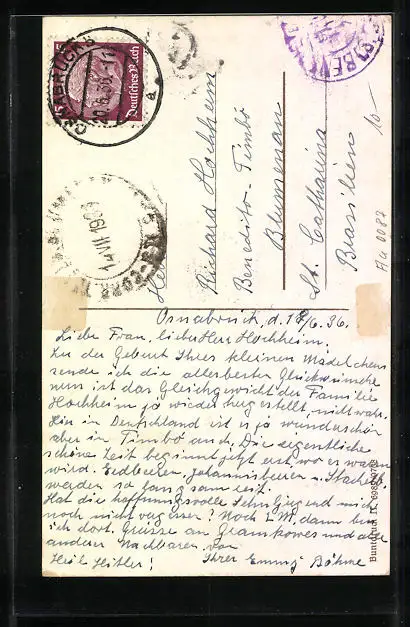 OSNABRÜCK 5
20.6.36.-11
a
Deutsches Reich
BENEDITO
14 VII 1936
Richard Hochheim
Benedito-Timbó
Blumenau
St. Catharina
Brasilien
10-
Au 0087
Osnabrück, d. 18/6. 36.
Liebe Frau, lieber Herr Hochheim.
Zu der Geburt Ihres kleinen Mädelchens
sende ich die allerbesten Glückwünsche
nun ist das Gleichgewicht der Familie
Hochheim ja wieder hergestellt, nicht wahr.
Hier in Deutschland ist es ja wunderschön
aber in Timbó auch. Die eigentliche
schöne Zeit beginnt jetzt erst, wo es warm
wird. Erdbeeren, Johannisbeeren u. Stachelb.
werden so langsam reif.
Hat die hoffnungsvolle Schuljugend mich
noch nicht vergessen? Noch 2 M. dann bin
ich dort. Grüsse an und alle
anderen Nachbaren von
Heil Hitler! Ihrer Emmy Böhme
Buntdruck